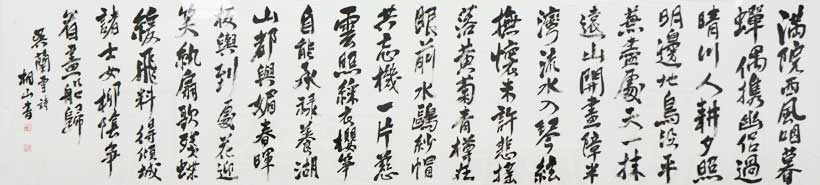 滿院西風咽暮
蟬偶攜幽侶過
晴川人耕夕照
明邊地鳥沒平
蕪盡處天一抹
遠山開畫障半
灣流水入琴絃
撫懷未許悲搖
落黃菊青樽在
眼前水鷗紗帽
共忘機一片慈
雲照綵衣櫻筍
自能承祿養湖
山都與媚春暉
板輿到處花迎
笑紈扇歌殘蝶
緩飛料得傾城
諸士女柳陰爭
看畫船歸
吳蘭雪詩
桐山書